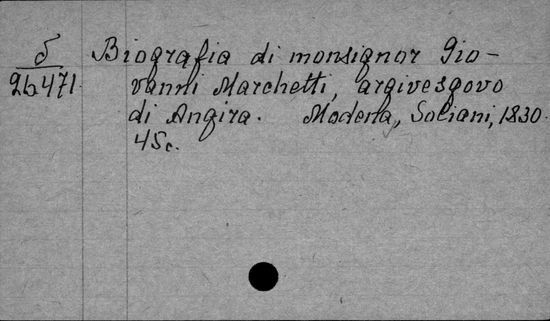 δ Biografia di monsignor Gio-
26471 vanni Marchetti, argivesgovo
di Angira. Modena, Soliani, 1830.
45c.